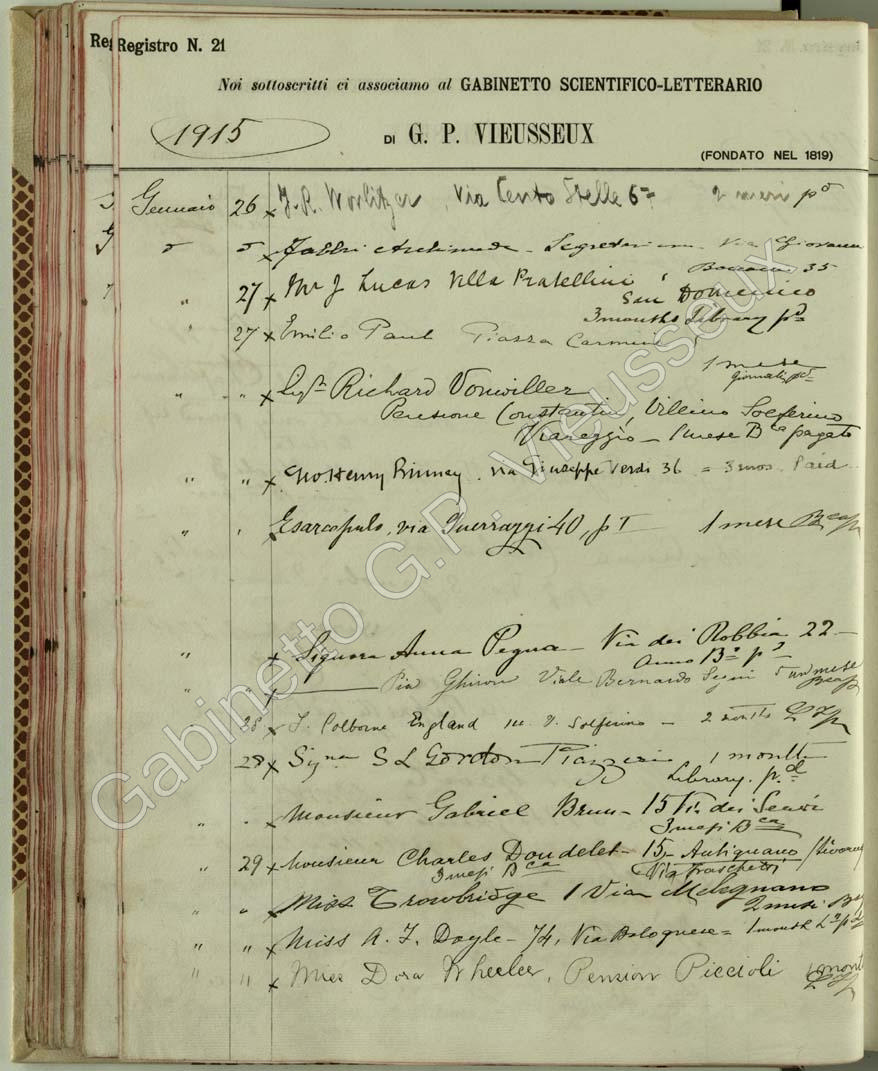 Registro N. 21
Noi sottoscritti ci associamo al GABINETTO SCIENTIFICO-LETTERARIO
1915
DI G. P. VIEUSSEUX
(FONDATO NEL 1819)
Gennaio 26 x J. R. Worlitzer, Via Cento Stelle 6
x Fabbri Archimede - Via Giovanni
35
" 27 x Mr J Lucas Villa Pratellini
San Domenico
3 months Library pd
27 x Emilio Paul Piazza Carmine
1 mese
giornali pd
" " x Sigr Richard Vonwiller
Pensione Constantin, Villino Solferino
Viareggio - 1 mese Bca pagato
" " x Henry Binney. via Giuseppe Verdi 36 = 3 mos. Paid
" " Esarcopulo, via Guerrazzi 40, p I 1 mese Bca
" x Signora Anna Pegna - Via dei Robbia 22 -
Anno Bca pd
" " x Pia Ghiron Viale Bernardo Segni 5 un mese
28 x J. Colborne England - 2 months
28 x Signa S L Gordon 1 month
Library. pd
" " x Monsieur Gabriel Brun - 15 Via dei Servi
3 mesi Bca
" 29 x Monsieur Charles Doudelet - 15, Antignano / Livorno
3 mesi Bca Via Fraschetti
" " x Miss Trowbridge 1 Via Melegnano
2 mesi
" " x Miss A. F. Doyle - 74, Via Bolognese = 1 month
" " x Miss Dora Wheeler, Pension Piccioli 1 month
Gabinetto G.P. Vieusseux